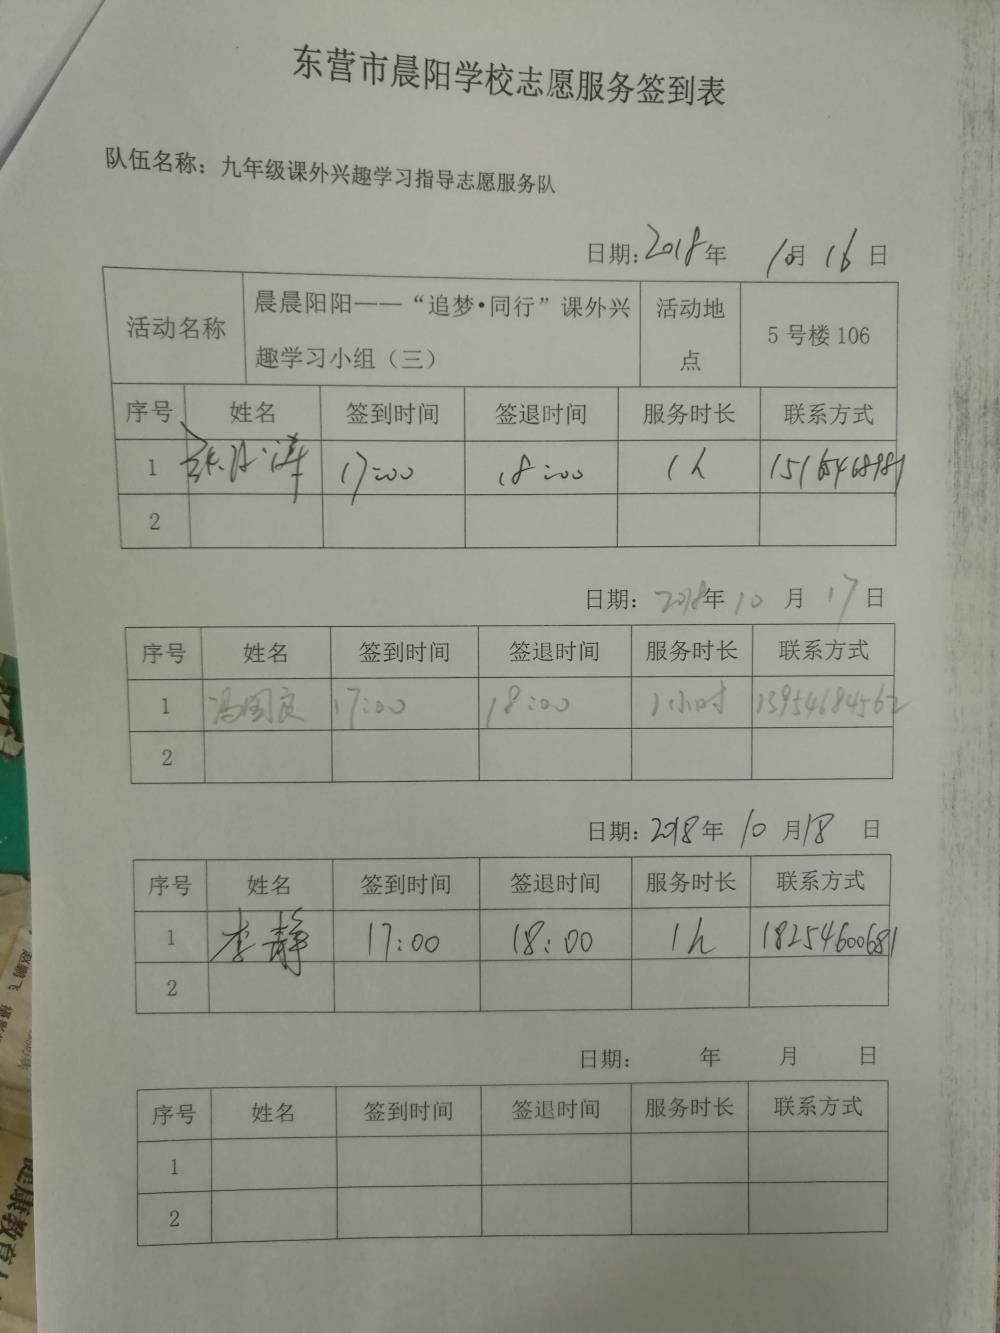 东营市晨阳学校志愿服务签到表
队伍名称：九年级课外兴趣学习指导志愿服务队
日期：2018年 10月 16 日
活动名称 晨晨阳阳——“追梦·同行”课外兴趣学习小组（三） 活动地点 5号楼106
序号 姓名 签到时间 签退时间 服务时长 联系方式
1 17:00 18:00 1h
2
日期：2018年 10 月 17 日
序号 姓名 签到时间 签退时间 服务时长 联系方式
1 冯国庆 17:00 18:00 1小时 13954684562
2
日期：2018年 10 月 18 日
序号 姓名 签到时间 签退时间 服务时长 联系方式
1 李静 17:00 18:00 1h 18254600681
2
日期： 年 月 日
序号 姓名 签到时间 签退时间 服务时长 联系方式
1
2
赵鹏飞
健康教育